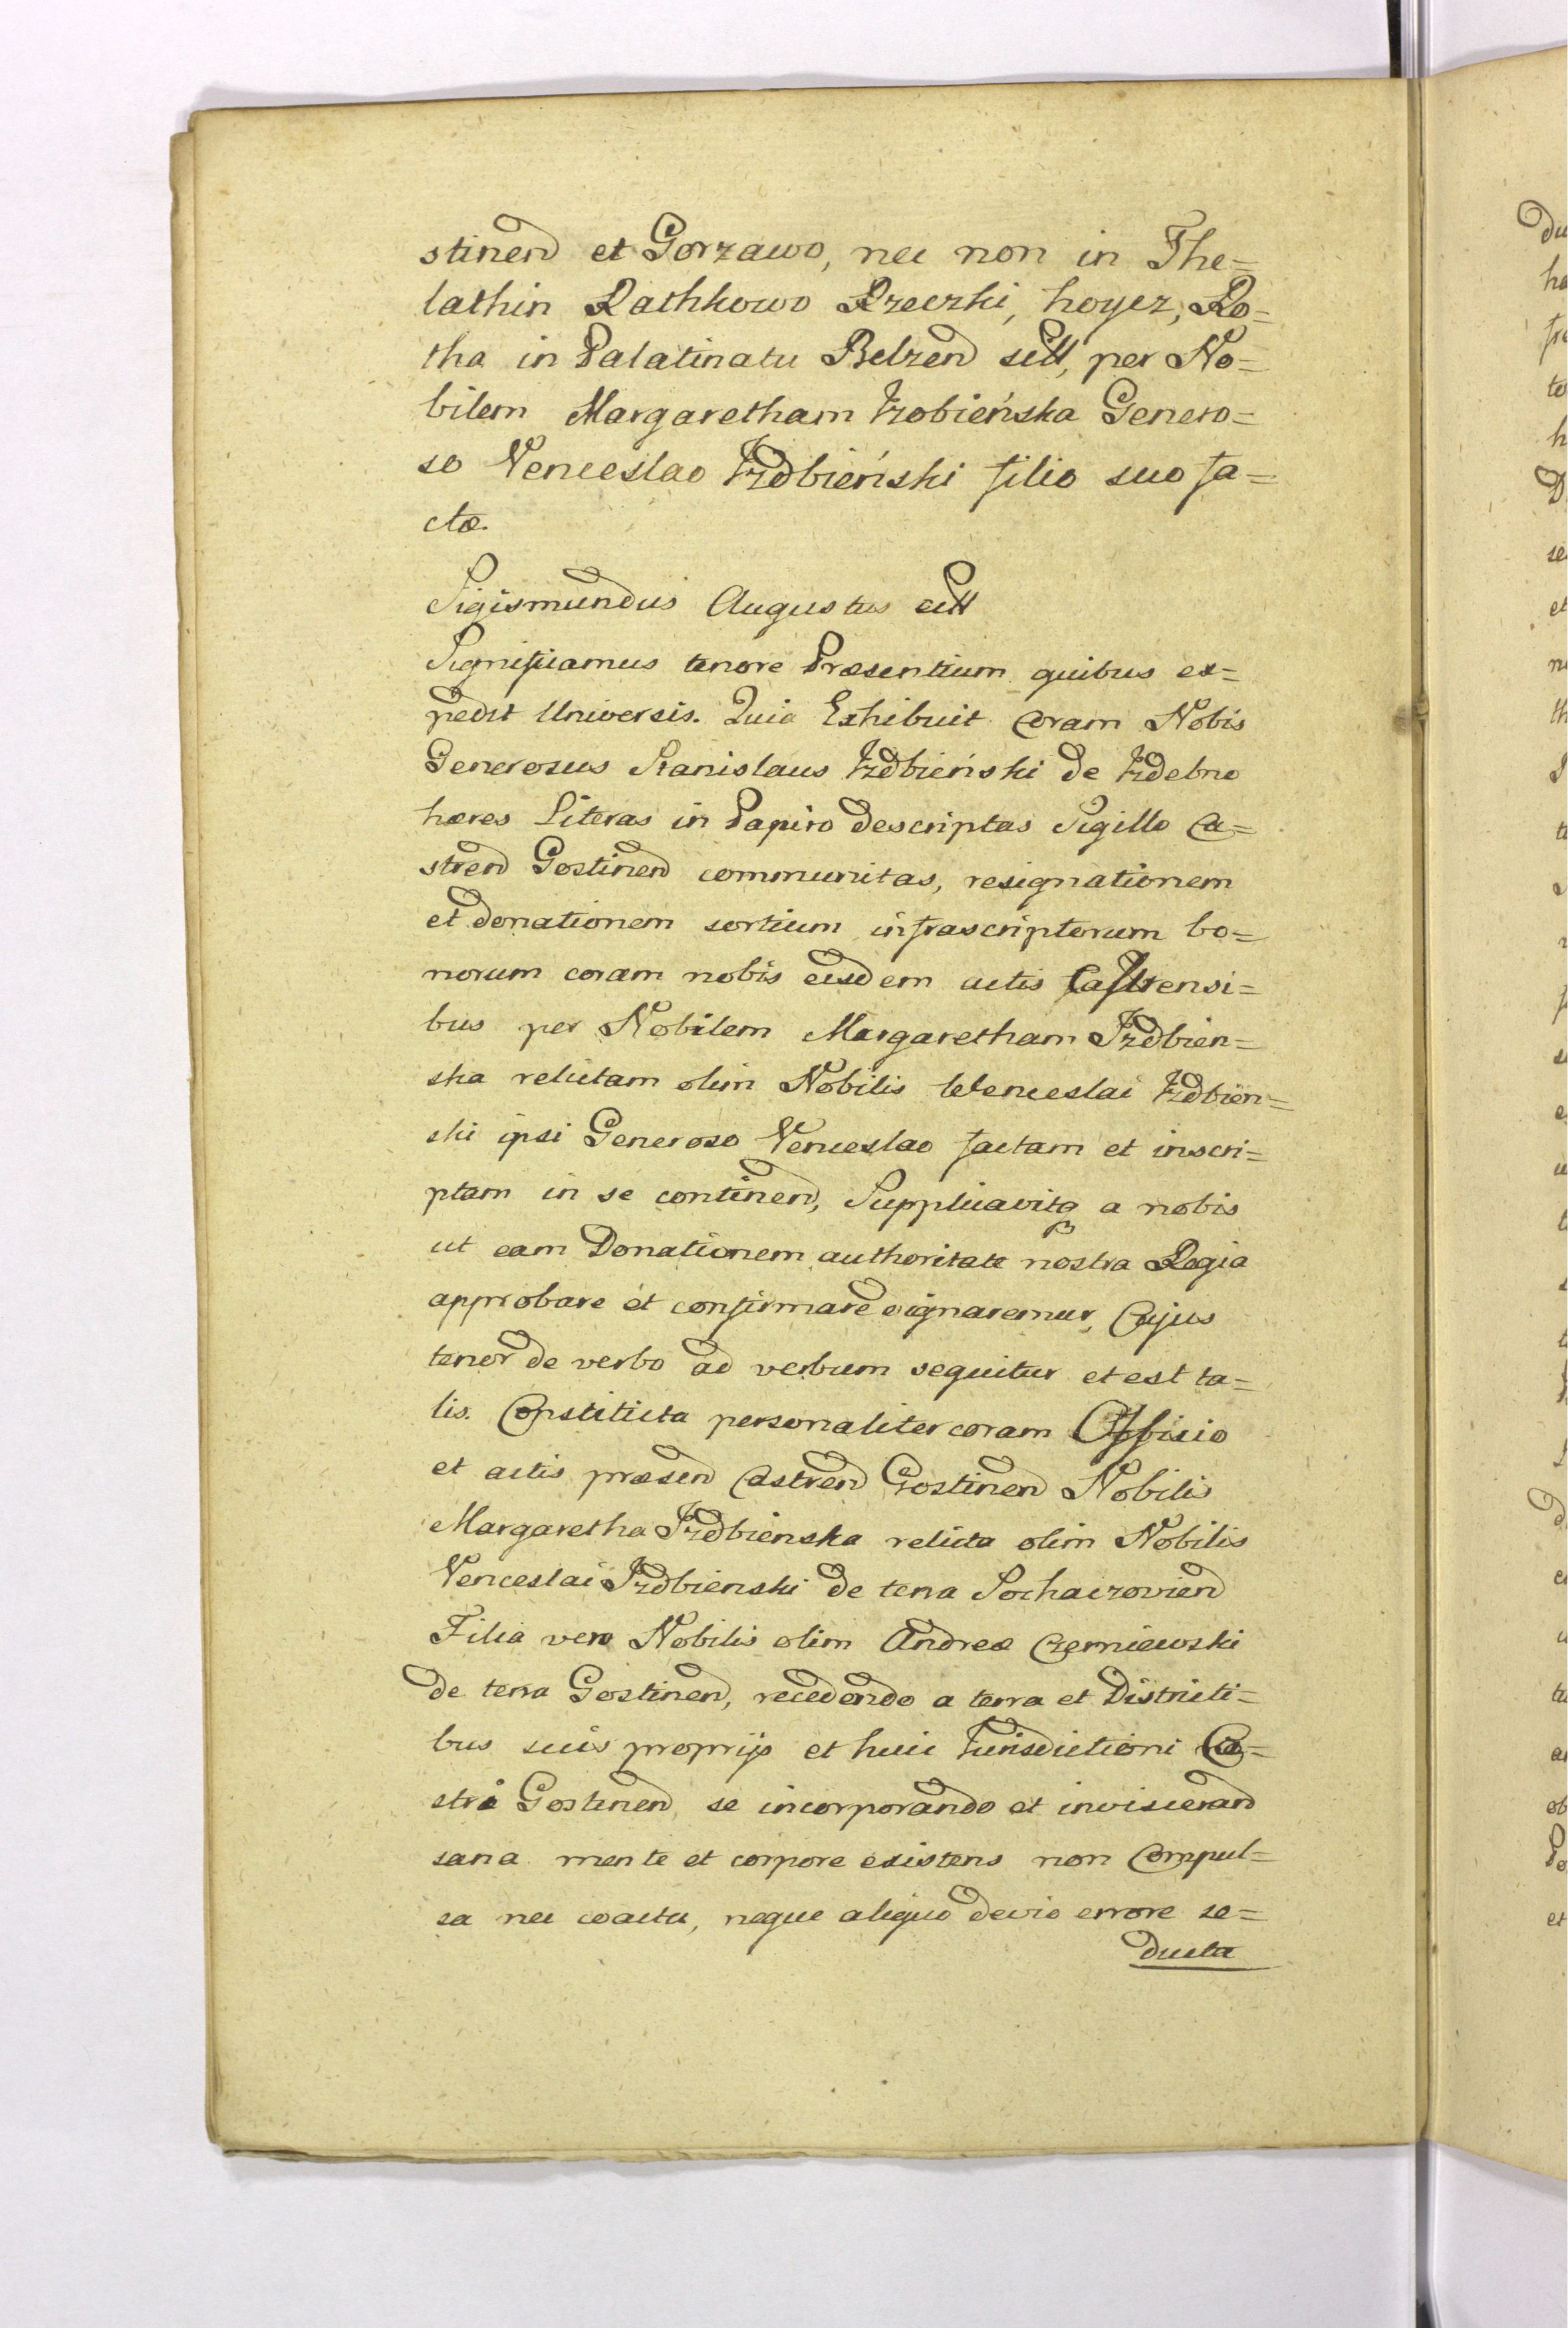 stinend et Gorzawo, nec non in The=
lathin Rathkowo Rzeczki, hoycz, Ro=
tha in Palatinatu Belzend sitt, per No=
bilem Margaretham Jzobieńska Genero=
so Venceslao Jzdbieński filio suo fa=
ctæ.
Sigismundus Augustus ett
Significamus tenore Præsentium quibus ex=
pedit Universis. Quia Exhibuit Coram Nobis
Generosus Stanislaus Jzdbieński de Jzdebno
hæres Literas in Papiro descriptas Sigillo Ca=
strend Gostinend communitas, resignationem
et donationem sortium infrascriptorum bo=
norum coram nobis eisdem actis Castrensi=
bus per Nobilem Margaretham Jzdbien=
ska relictam olim Nobilis Wenceslai Jzdbień=
ski ipsi Generoso Venceslao factam et inscri=
ptam in se continend, Supplicavitq a nobis
ut eam Donationem authoritate nostra Regia
approbare et confirmare dignaremur, Cujus
tenor de verbo ad verbum sequitur et est ta=
lis. Constituta personaliter coram Officio
et actis præsend Castrend Gostinend Nobilis
Margaretha Jzdbienska relicta olim Nobilis
Venceslai Jzdbienski de terra Sochaczoviend
Filia vero Nobilis olim Andreæ Czerniewski
de terra Gostinend, recedendo a terra et Districti=
bus suis proprijs et huic Jurisdictioni Ca=
stri Gostinend se incorporando et inviscerand
sana mente et corpore existens non Compul=
sa nec coacta, neque aliquo devio errore se=
ducta